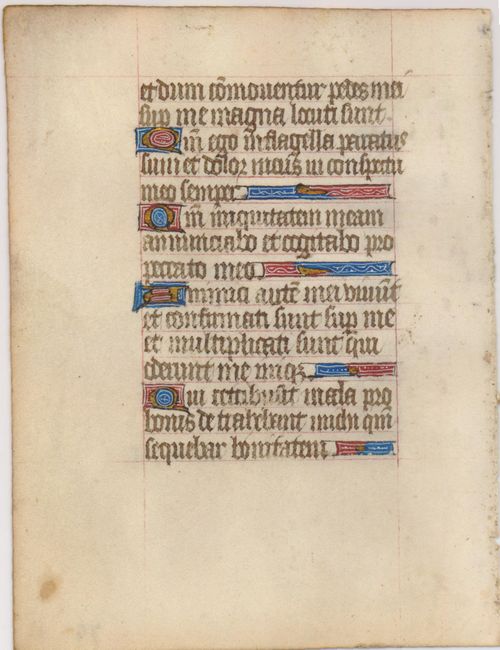 et dum cōmouentur pedes mei
sup me magna locuti sunt
Qm̄ ego in flagella paratus
sum et dolor meus in conspectu
meo semper
Qm̄ iniquitatem meam
annunciabo et cogitabo pro
peccato meo
Inimici autē mei viuūt
et confirmati sunt sup me
et multiplicati sunt qui
oderunt me iniq
Qui retribuūt mala pro
bonis detrahebant michi qm̄
sequebar bonitatem